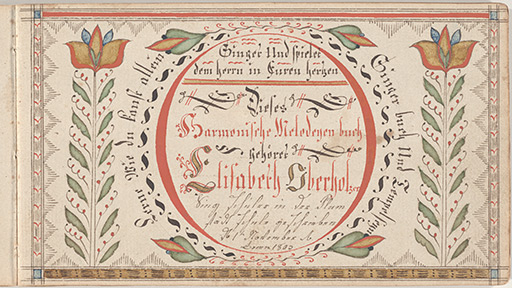 Singet Und spielet
dem herrn in Euren hertzen
Dieses
Harmonische Melodeyen buch
gehöret
Elisabeth Oberholzer
Sing schuler in der Plum
städ schule geschrieben
1803
Lerne wie du kanst allein
Singer buch Und